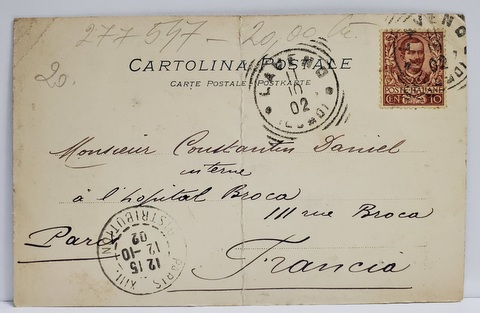 277597 - 20,00
20.
CARTOLINA POSTALE
CARTE POSTALE - POSTKARTE
LAVENO
02
POSTE ITALIANE
CEN 10
Monsieur Constantin Daniel
interne
à l'hopital Broca
111 rue Broca
Paris
Francia
PARIS XIII
DISTRIBUTION
12 15
12-10
02